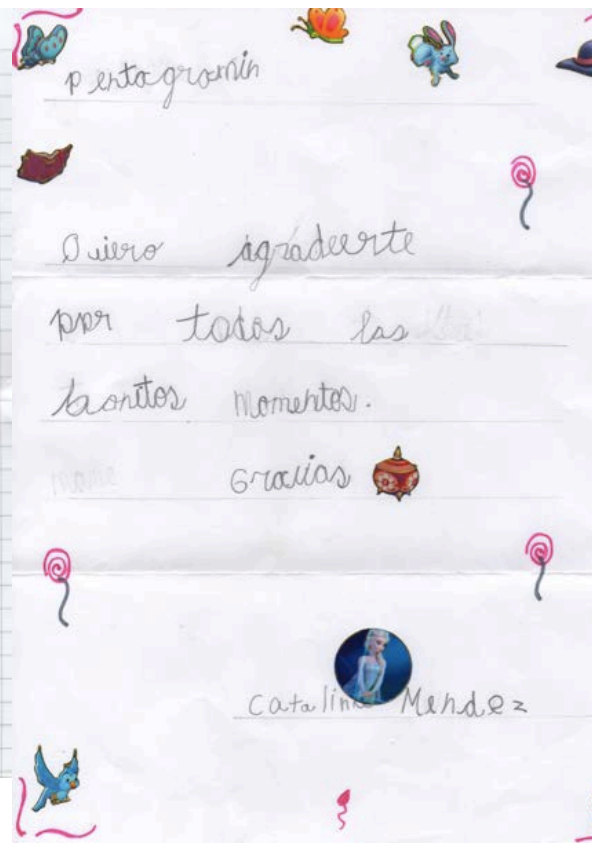 Pentagramin
Quiero agradecerte
por todos las
bonitos momentos.
Gracias
Catalina Mendez